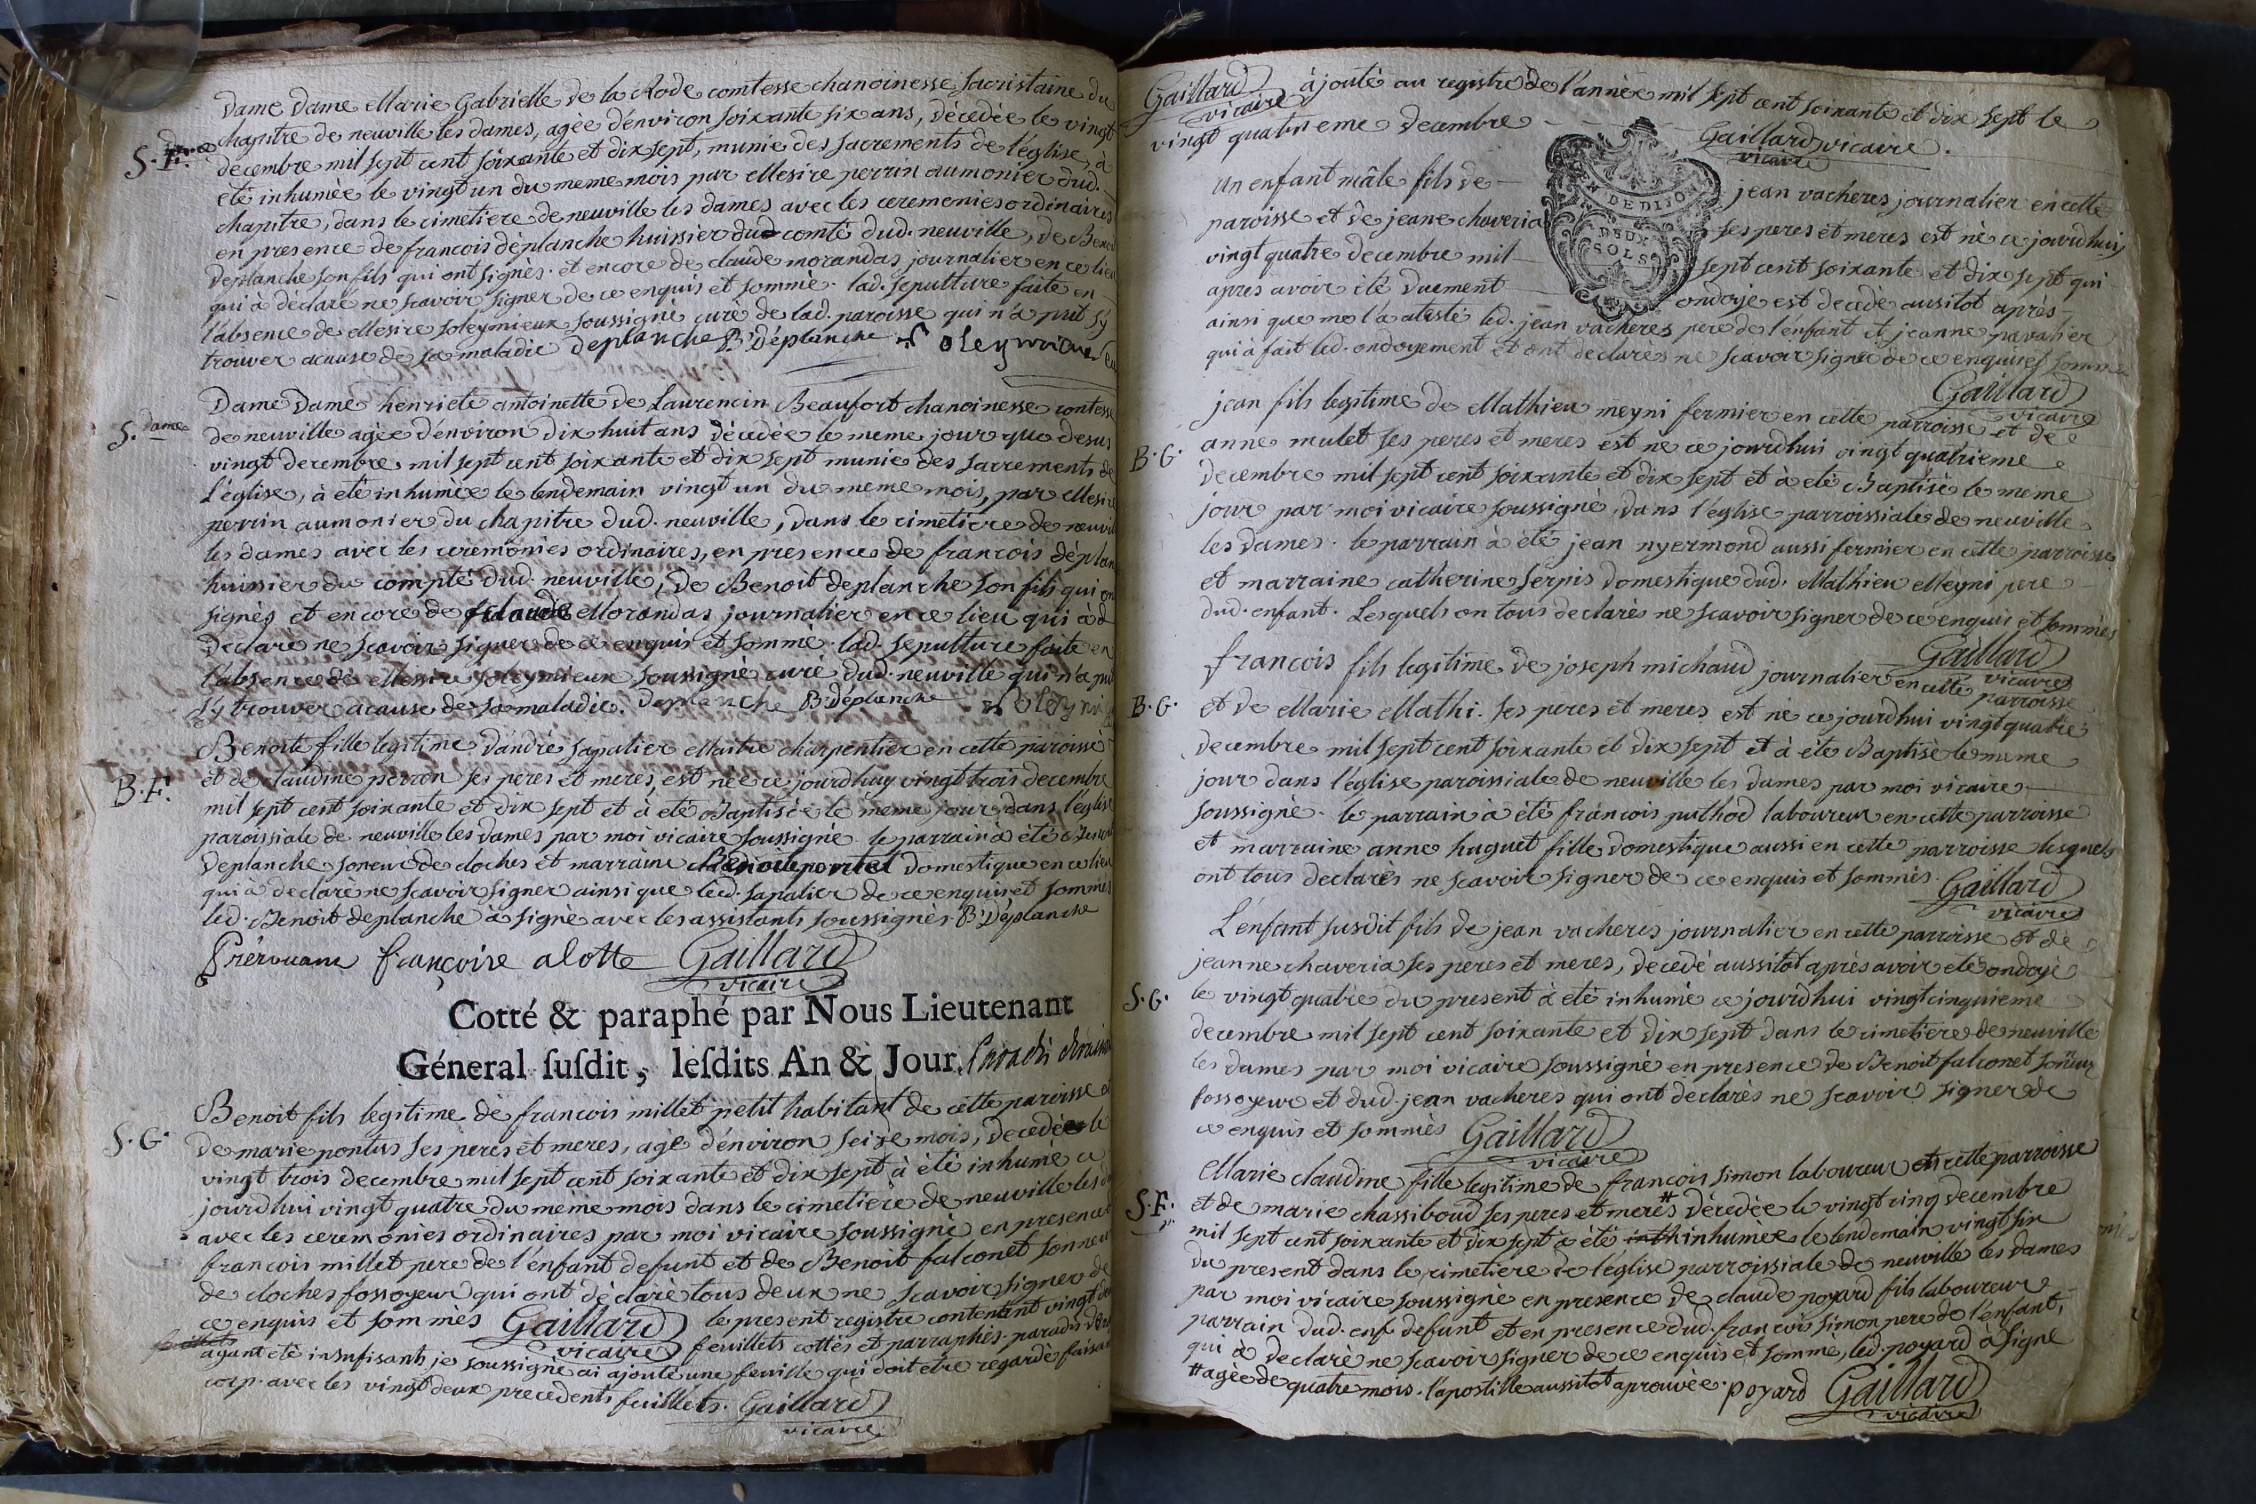 Dame Dame Marie Gabrielle de la Rode comtesse chanoinesse sacristaine du
S. F.
chapitre de neuville les dames, agèe d'environ soixante six ans, dècedèe le vingt
decembre mil sept cent soixante et dix sept, munie des sacrements de l'église, à
eté inhumèe le vingt un du meme mois par Messire perrin aumonier dud.
chapitre, dans le cimetiere de neuville les dames avec les ceremonies ordinaires
en presence de francois dèplanche huissier du comté dud. neuville, de Benoit
deplanche son fils qui ont signès. et encore de claude morandas journalier en ce lieu
qui à dèclaré ne scavoir signer de ce enquis et sommè. lad. sepulture faite en
l'absence de Messire soleymieux soussignè curè de lad. paroisse qui n'a put s'y
trouver acause de sa maladie deplanche B. dèplanche Soleymieux
Dame Dame henriete antoinette de Laurencin Beaufort chanoinesse contesse
S. dame
de neuville agèe d'environ dix huit ans dècedèe le meme jour que desus
vingt decembre mil sept cent soixante et dix sept munie des sacrements de
l'église, à eté inhumèe le lendemain vingt un du meme mois, par Messire
perrin aumonier du chapitre dud. neuville, dans le cimetiere de neuville
les dames avec les ceremonies ordinaires, en presence de francois déplan
huissier du compté dud. neuville, de Benoit deplanche son fils qui on
signès et encore de claude Morandas journalier en ce lieu qui à d
declare ne scavoir signer de ce enquis et sommè. lad. sepulture faite en
l'absence de Messire soleymieux soussignè curè dud. neuville qui n'a put
s'y trouver acause de sa maladie. deplanche B. dèplanche Soleymi
Benoite fille legitime d'andrè sapalier Maitre charpentier en cette paroisse
B. F.
et de claudine perron ses peres et meres, est née ce jourdhuy vingt trois decembre
mil sept cent soixante et dix sept et à eté Baptisée le meme jour dans l'église
paroissiale de neuville les dames par moi vicaire soussignè. le parrain à été Benoit
deplanche soneur de cloches et marraine Benoite pontet domestique en ce lieu
qui à declarè ne scavoir signer ainsi que led. sapalier de ce enquis et sommès
led. Benoit deplanche à signè avec les assistants soussignès B. Dèplanche
françoise alotte Gaillard
vicaire
Cotté & paraphé par Nous Lieutenant
Géneral ſuſdit, leſdits An & Jour.
Benoit fils legitime de francois millet petit habitant de cette paroisse et
S. G.
de marie pontus ses peres et meres, agè d'énviron seize mois, decedè le
vingt trois decembre mil sept cent soixante et dix sept à èté inhumè ce
jourdhui vingt quatre du mème mois dans le cimetière de neuville les d
avec les ceremonies ordinaires par moi vicaire soussignè en presence
francois millet pere de l'énfant defunt et de Benoit falconet sonneur
de cloches fossoyeur qui ont dèclarè tous deux ne scavoir signer de
ce enquis et sommès Gaillard le present registre contentent vingt deux
vicaire feuillets cottés et parraphès. paradis
ayant eté insufisants je soussigné ai ajouté une feuille qui doit etre regardè faisant
corp. avec les vingt deux precedents feuillets. Gaillard
vicaire
Gaillard
vicaire
àjouté au registre de l'annèe mil sept cent soixante et dix sept le
vingt quatrieme decembre
Gaillard vicaire.
vicaire
N DE DIJON
DEUX
SOLS
un enfant mâle fils de jean vacheres journalier en cette
paroisse et de jeane chaveria ses peres et meres est nè ce jourdhuy
vingt quatre decembre mil sept cent soixante et dix sept qui
apres avoir été duement ondoyé est decedè aussitot après
ainsi que me l'a atesté led. jean vacheres pere de l'énfant et jeanne pavalier
qui à fait led. ondoyement et ont declarès ne scavoir signer de ce enquis et sommès
Gaillard
vicaire
jean fils legitime de Mathieu meyni fermier en cette parroisse et de
B. G.
anne mulet ses peres et meres est ne ce jourdhui vingt quatrieme
decembre mil sept cent soixante et dix sept et à eté Baptisé le meme
jour par moi vicaire soussignè, dans l'église parroissiale de neuville
les dames. le parrain à été jean nyermond aussi fermier en cette parroisse
et marraine catherine serpis domestique dud. Mathieu Meyni pere
dud. enfant. Lesquels on tous declarès ne scavoir signer de ce enquis et sommès
Gaillard
vicaire
francois fils legitime de joseph michaud journalier en cette parroisse
B. G.
et de Marie Mathi. ses peres et meres est né ce jourdhui vingt quatre
decembre mil sept cent soixante et dix sept et à èté Baptisè le meme
jour dans l'église paroissiale de neuville les dames par moi vicaire
soussignè. le parrain à été francois puthod laboureur en cette parroisse
et marraine anne huguet fille domestique aussi en cette parroisse lesquels
ont tous declarès ne scavoir signer de ce enquis et sommès. Gaillard
vicaire
L'enfant susdit fils de jean vacheres journalier en cette parroisse et de
jeanne chaveria ses peres et meres, decedé aussitot après avoir eté ondoyè
S. G.
le vingt quatre du present à eté inhumè ce jourdhui vingt cinquieme
decembre mil sept cent soixante et dix sept dans le cimetiere de neuville
les dames par moi vicaire soussignè en presence de Benoit falconet sonneur
fossoyeur et dud. jean vacheres qui ont declarès ne scavoir signer de
ce enquis et sommès Gaillard
vicaire
Marie claudine fille legitime de francois simon laboureur en cette parroisse
S. F.
et de marie chassiboud ses peres et meres # dècedèe le vingt cinq decembre
mil sept cent soixante et dix sept à été inth inhumèe le lendemain vingt six
du present dans le cimetiere de l'église parroissiale de neuville les dames
par moi vicaire soussignè en presence de claude poyard fils laboureur
parrain dud. enf. defunt et en presence dud. francois simon pere de l'enfant,
qui à declarè ne scavoir signer de ce enquis et sommè, led. poyard à signè
# agèe de quatre mois. l'apostille aussitot aprouvèe. poyard Gaillard
vicaire